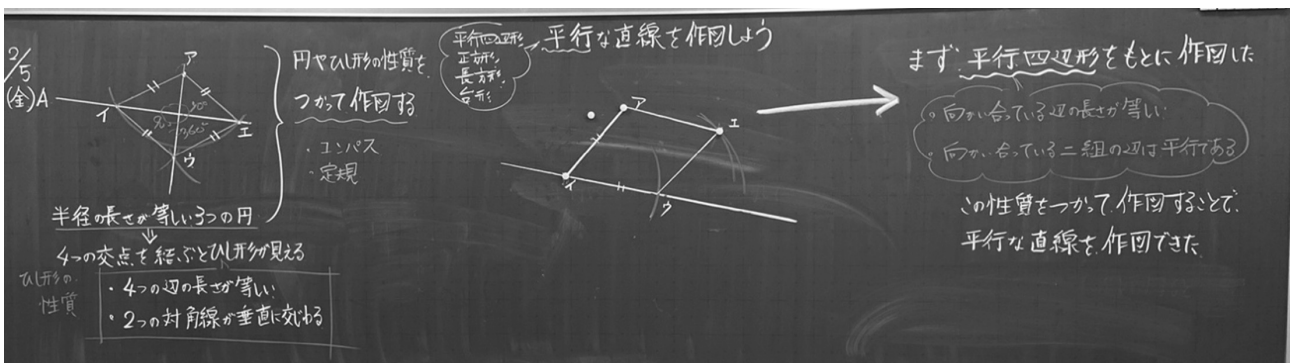 2/5
(金)
A
ア
イ
エ
ウ
90°
円やひし形の性質を
つかって作図する
・コンパス
・定規
半径の長さが等しい3つの円
4つの交点を結ぶとひし形が見える
ひし形の
性質
・4つの辺の長さが等しい
・2つの対角線が垂直に交わる
平行四辺形
正方形
長方形
台形
平行な直線を作図しよう
ア
エ
イ
ウ
まず平行四辺形をもとに作図した
・向かい合っている辺の長さが等しい
・向かい合っている二組の辺は平行である
この性質をつかって作図することで、
平行な直線を作図できた